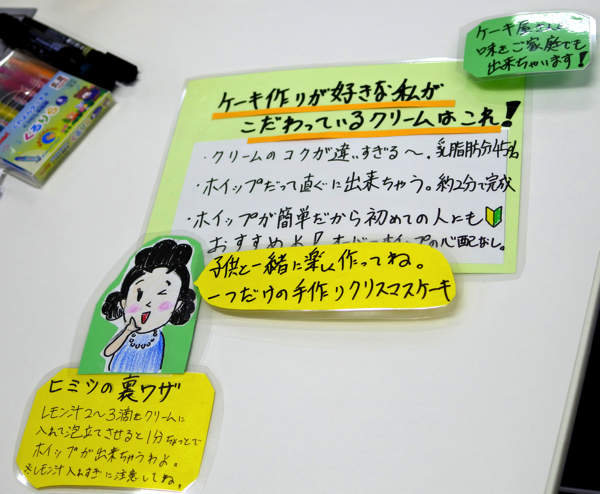 ケーキ屋さんの
味をご家庭でも
出来ちゃいます!
ケーキ作りが好きな私が
こだわっているクリームはこれ!
・クリームのコクが違いすぎる〜。乳脂肪分45%
・ホイップだって直ぐに出来ちゃう。約2分で完成
・ホイップが簡単だから初めての人にも
おすすめよ!オーバーホイップの心配なし。
子供と一緒に楽しく作ってね。
一つだけの手作りクリスマスケーキ
ヒミツの裏ワザ
レモン汁2〜3滴をクリームに
入れて泡立てさせると1分ちょっとで
ホイップが出来ちゃうわよ。
※レモン汁入れすぎに注意してね。